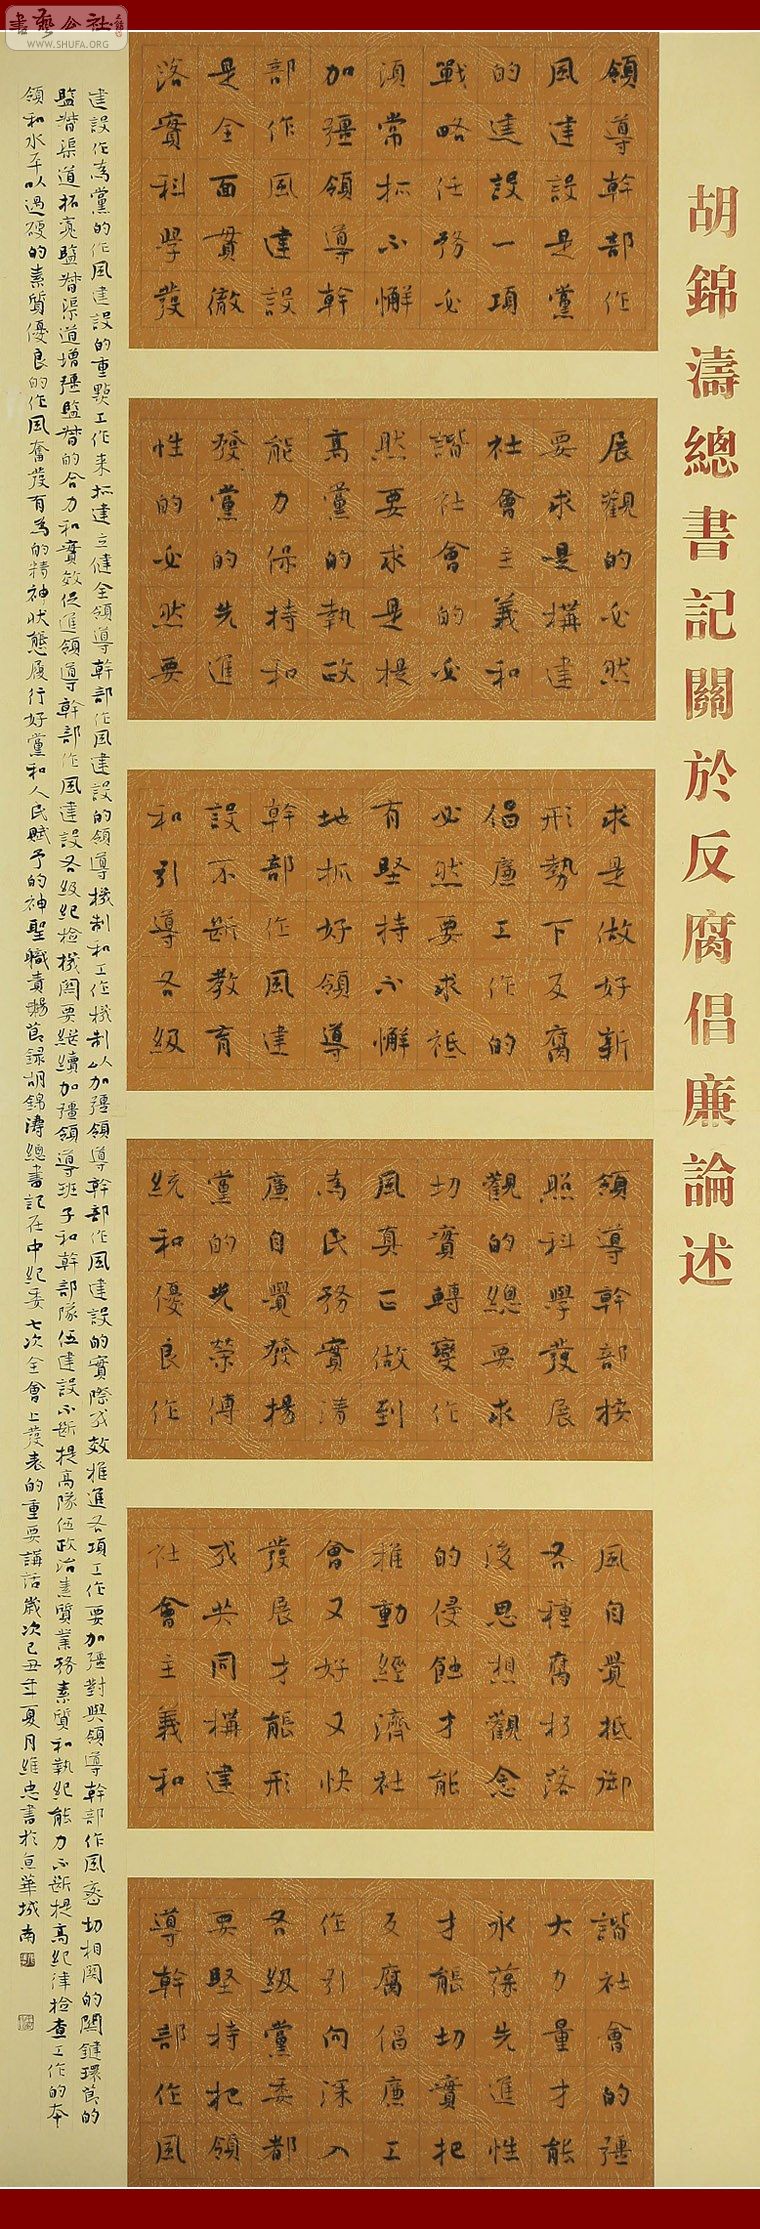 書藝公社
WWW.SHUFA.ORG
胡錦濤總書記關於反腐倡廉論述
領導幹部作
風建設是黨
的建設一項
戰略任務必
須常抓不懈
加彊領導幹
部作風建設
是全面貫徹
落實科學發
展觀的必然
要求是構建
社會主義和
諧社會的必
然要求是提
高黨的執政
能力保持和
發黨的先進
性的必然要
求是做好新
形勢下反腐
倡廉工作的
必然要求祗
有堅持不懈
地抓好領導
幹部作風建
設不斷教育
和引導各級
領導幹部按
照科學發展
觀的總要求
切實轉變作
風真正做到
為民務實清
廉自覺發揚
黨的光榮傳
統和優良作
風自覺抵御
各種腐朽落
後思想觀念
的侵蝕才能
推動經濟社
會又好又快
發展才能形
成共同構建
社會主義和
諧社會的彊
大力量才能
永葆先進性
才能切實把
反腐倡廉工
作引向深入
各級黨委都
要堅持把領
導幹部作風
建設作為黨的作風建設的重點工作來抓建立健全領導幹部作風建設的領導機制和工作機制以加彊領導幹部作風建設的實際成效推進各項工作要加彊對與領導幹部作風密切相関的関鍵環節的
監督渠道拓寬監督渠道增彊監督的合力和實效促進領導幹部作風建設各級紀檢機関要継續加彊領導班子和幹部隊伍建設不斷提高隊伍政治素質業務素質和執紀能力不斷提高紀律檢查工作的本
領和水平以過硬的素質優良的作風奮發有為的精神狀態履行好黨和人民賦予的神聖職責節録胡錦濤總書記在中紀委七次全會上發表的重要講話歲次己丑年夏月維忠書於京華城南